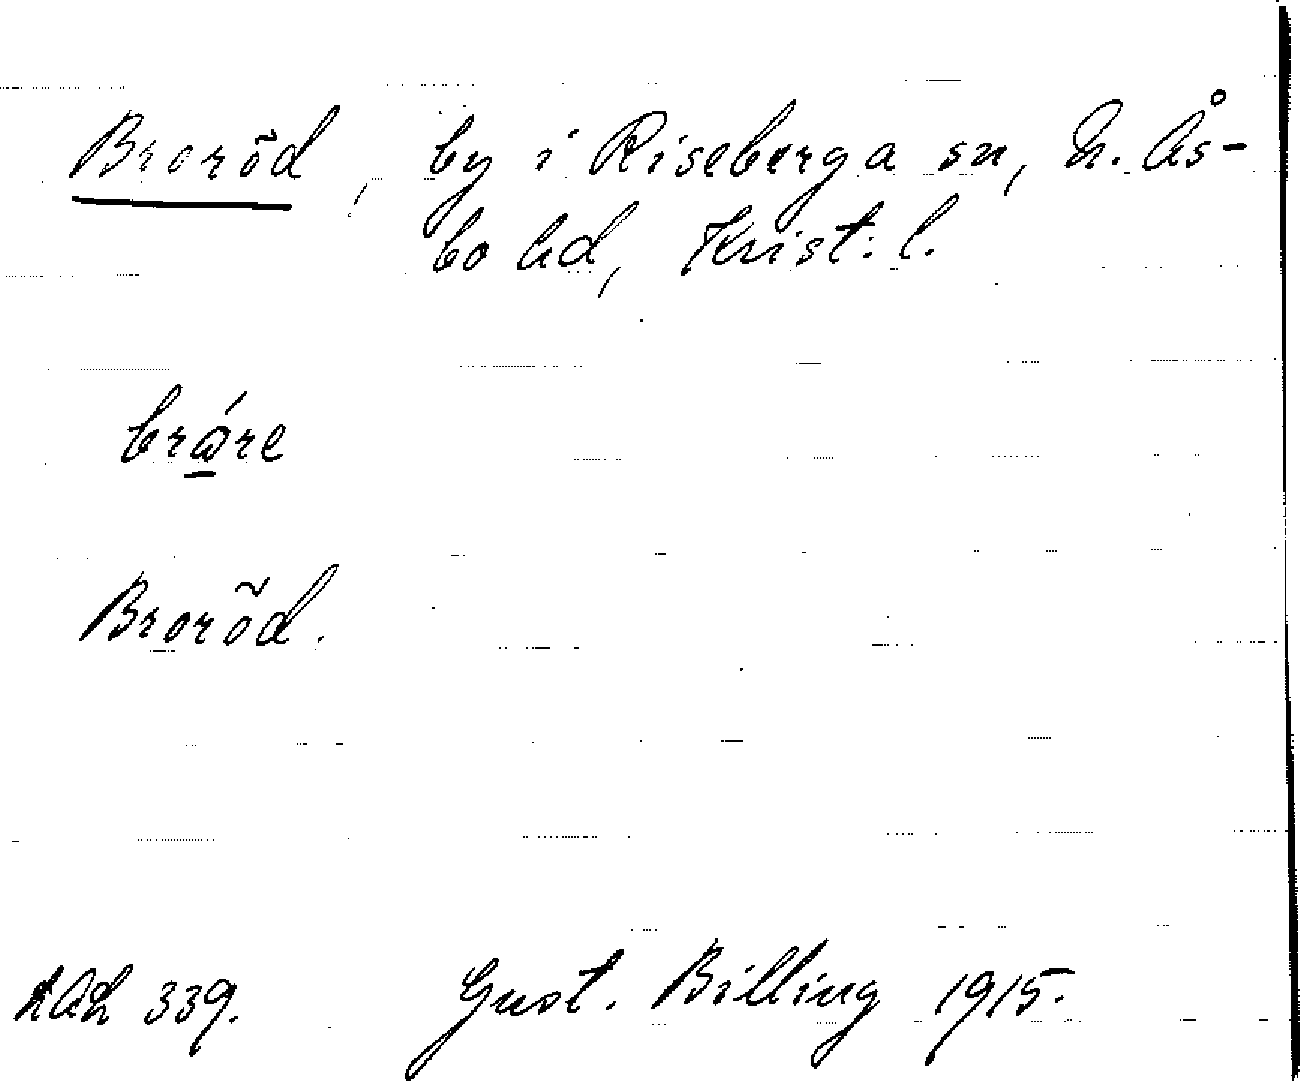 Broröd, by i Riseberga sn, N. Ås-
bo hd, Krist. l.
Broröd.
339. Gust. Billing 1915.